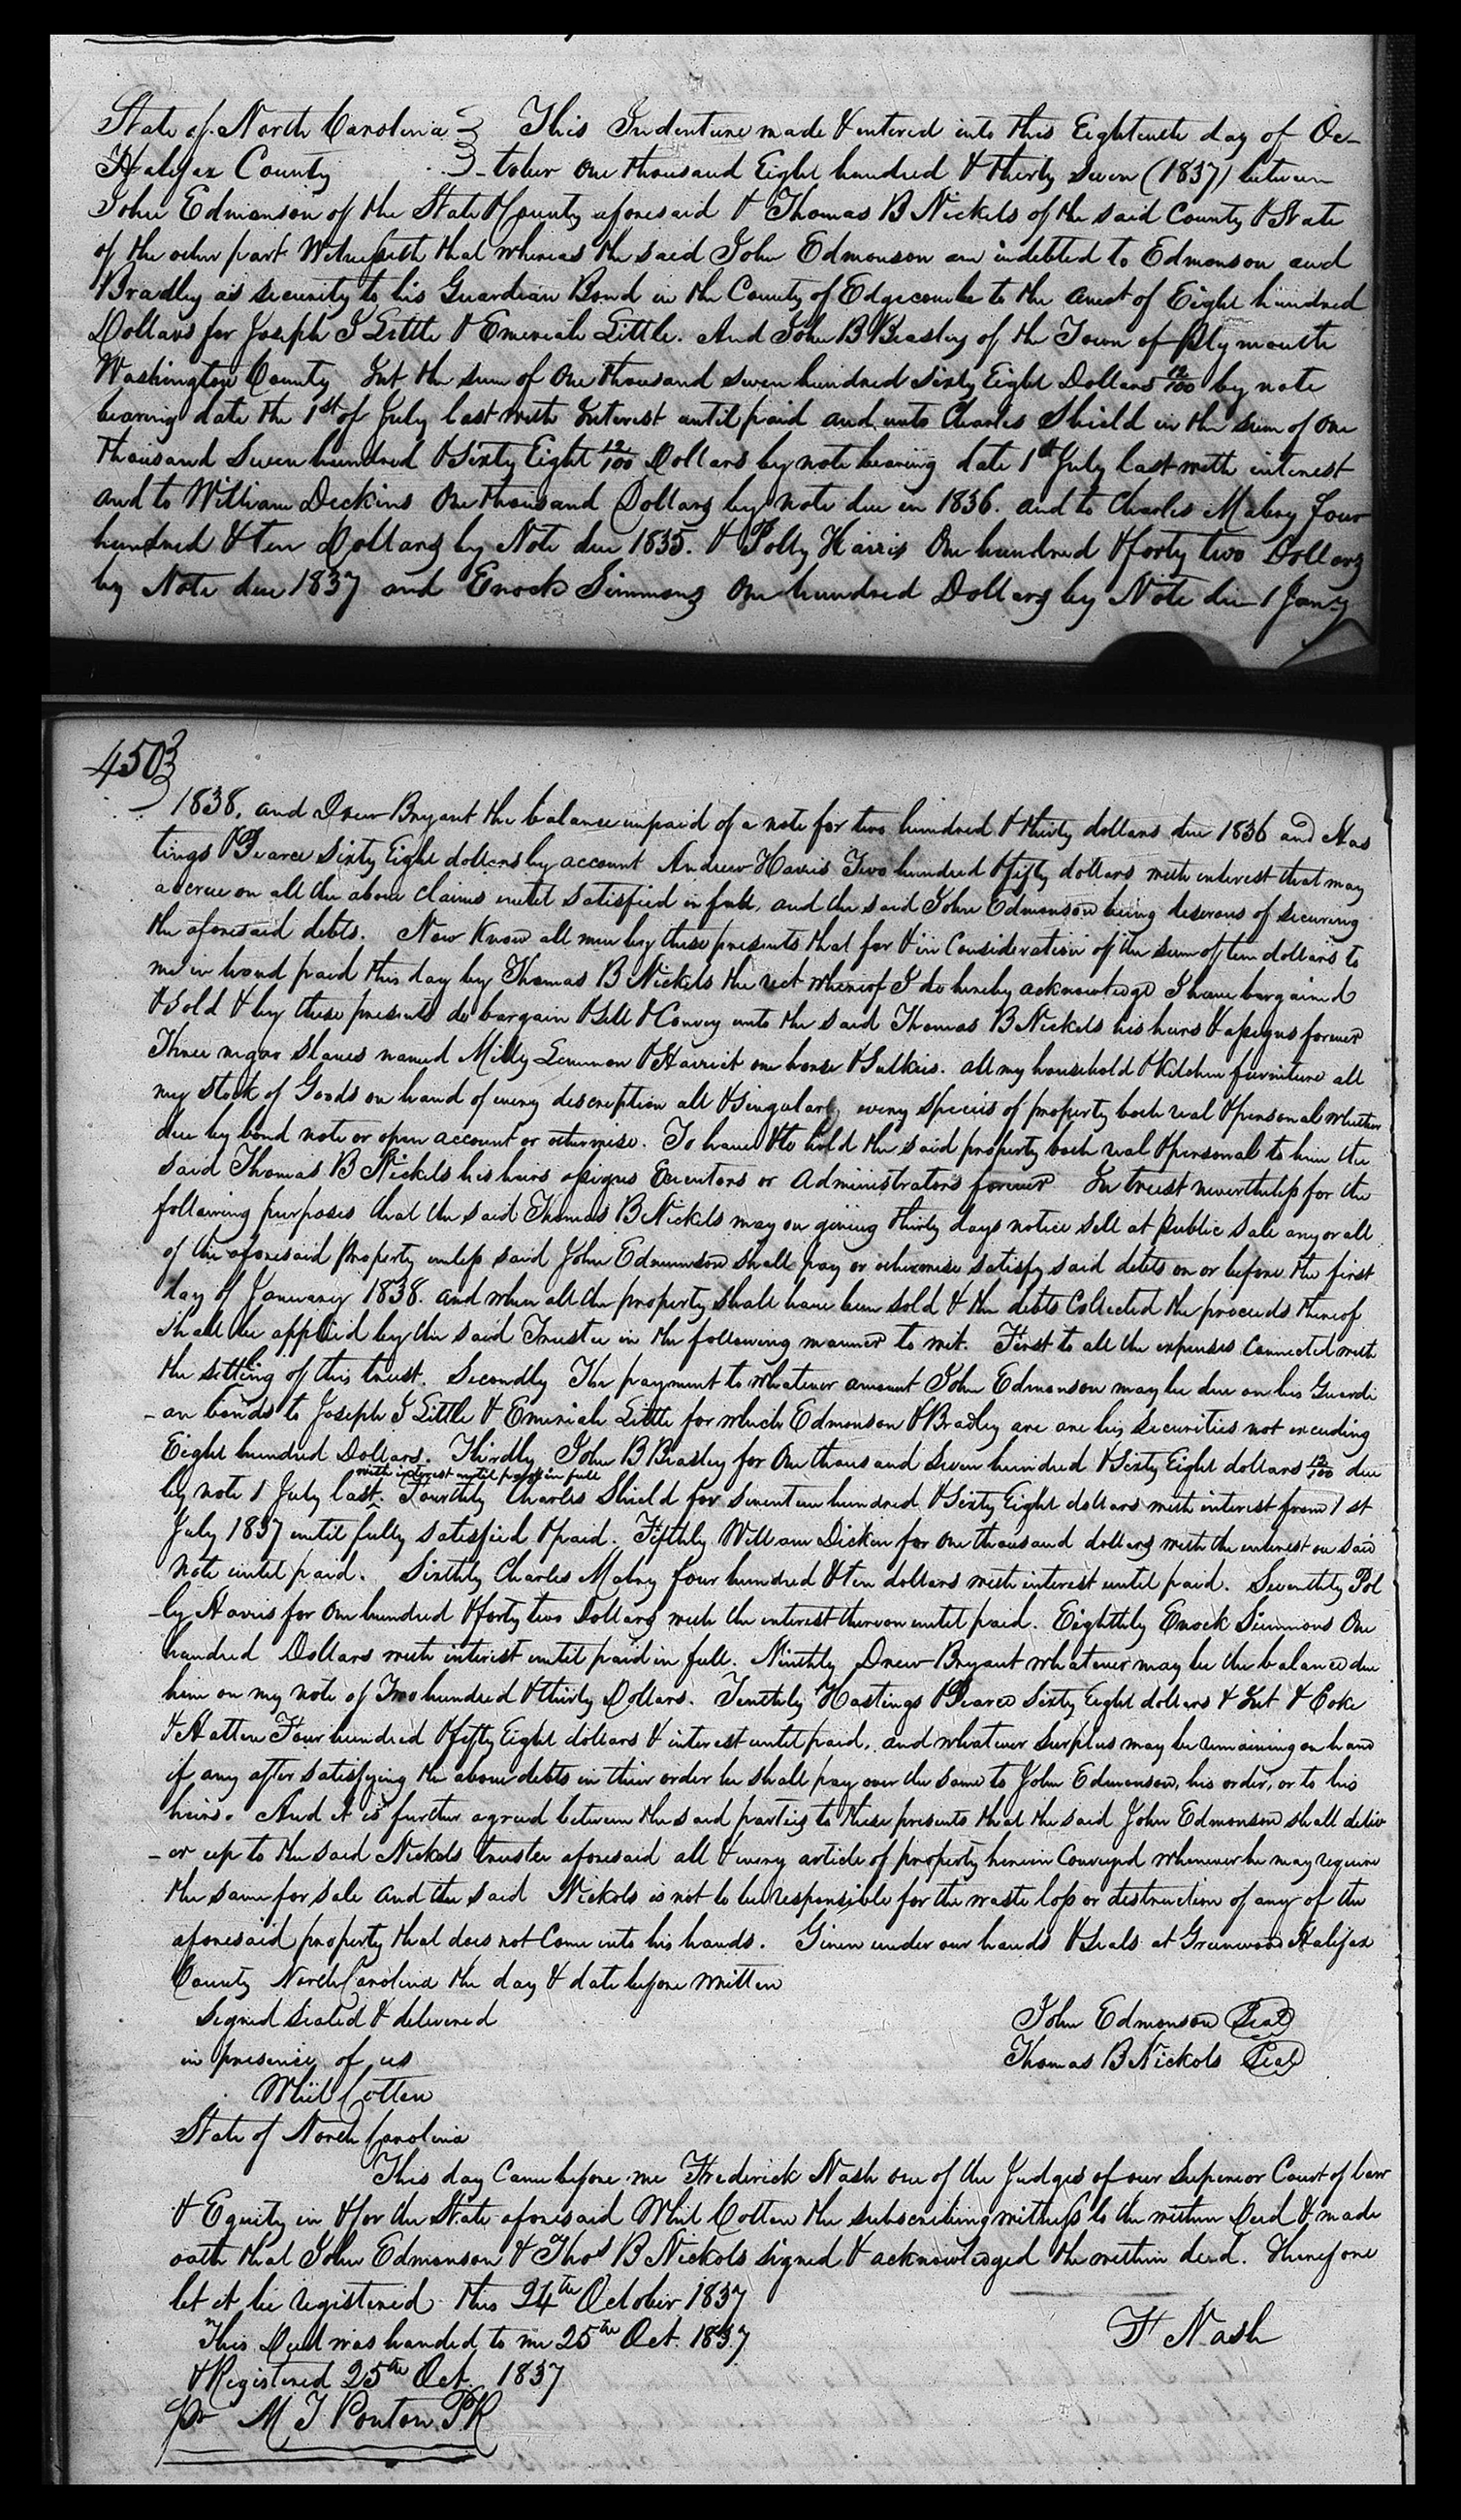 State of North Carolina } This Indenture made & entered into this Eighteenth day of Oc-
Halifax County } -tober one thousand Eight hundred & thirty seven (1837) between
John Edmonson of the State & County aforesaid & Thomas B Nickels of the said County & State
of the other part Witnesseth that whereas the said John Edmonson am indebted to Edmonson and
Bradley as security to his Guardian Bond in the County of Edgecombe to the amt of Eight hundred
Dollars for Joseph J Little & Emeriah Little. And John B Beasley of the Town of Plymouth
Washington County Int the sum of One thousand seven hundred sixty Eight Dollars 12/100 by note
bearing date the 1st of July last with Interest until paid and unto Charles Shield in the sum of One
thousand Seven hundred & Sixty Eight 12/100 Dollars by note bearing date 1st July last with interest
and to William Dickins One thousand Dollars by note due in 1836. and to Charles Mabry four
hundred & ten Dollars by Note due 1835. & Polly Harris One hundred & forty two Dollars
by Note due 1837 and Enock Simmons One hundred Dollars by Note due 1 Jany
450
1838. and Drew Bryant the balance unpaid of a note for two hundred & thirty dollars due 1836 and Has
tings & Pearce Sixty Eight dollars by account Andrew Harris Two hundred & fifty dollars with interest that may
accrue on all the above claims until satisfied in full, and the said John Edmonson being deserous of securing
the aforesaid debts. Now Know all men by these presents that for & in Consideration of the sum of ten dollars to
me in hand paid this day by Thomas B Nickels the rect whereof I do hereby acknowledge I have bargained
& Sold & by these presents do bargain & Sell & Convey unto the said Thomas B Nickels his heirs & assigns forever
Three negro Slaves named Milly Lemmon & Harriet one horse & Sulkies. all my household & Kitchen furniture all
my stock of Goods on hand of every description all & Singularly every species of property both real & personal whether
due by bond note or open account or otherwise. To have & to hold the said property both real & personal to him the
said Thomas B Nickels his heirs assigns Executors or Administrators forever In trust nevertheless for the
following purposes that the said Thomas B Nickels may on giving thirty days notice sell at public sale any or all
of the aforesaid property unless said John Edmundson shall pay or otherwise satisfy said debts on or before the first
day of Januarary 1838. and when all the property shall have been sold & the debts Collected the proceeds thereof
shall be applied by the said Trustee in the following manner to wit. First to all the expenses Connected with
the settling of this trust. Secondly The payment to whatever amount John Edmonson may be due on his Guardi
-an bonds to Joseph J Little & Emeriah Little for which Edmonson & Bradley are are his securities not exceeding
Eight hundred Dollars. Thirdly John B Beasley for One thousand Seven hundred & Sixty Eight dollars 12/100 due
with interest until paid in full
by note 1 July last. Fourthly Charles Shield for Seventeen hundred & Sixty Eight dollars with interest from 1st
July 1837 until fully satisfied & paid. Fifthly William Dicken for one thousand dollars with the interest on said
Note until paid. Sixthly Charles Mabry four hundred & ten dollars with interest until paid. Seventhly Pol
-ly Harris for One hundred & forty two Dollars with the interest thereon until paid. Eighthly Enock Simmons One
hundred Dollars with interest until paid in full. Ninthly Drew Bryant whatever may be the balance due
him on my note of Two hundred & thirty Dollars. Tenthly Hastings & Pearce Sixty Eight dollars & Int & Coke
& Hatten Four hundred & fifty Eight dollars & interest until paid, and whatever surplus may be remaining on hand
if any after satisfying the above debts in their order he shall pay over the same to John Edmonson, his order, or to his
heirs. And it is further agreed between the said parties to these presents that the said John Edmonson shall deliv
-er up to the said Nickols trustee aforesaid all & every article of property herein Conveyed whenever he may require
the same for sale and the said Nickols is not to be responsible for the waste loss or destruction of any of the
aforesaid property that does not Come into his hands. Given under our hands & Seals at Greenwood Halifax
County North Carolina the day & date before written
Signed Sealed & delivered John Edmonson Seal
in presence of us Thomas B Nickols Seal
Whit Cotten
State of North Carolina
This day Came before me Frederick Nash one of the Judges of our Superior Court of law
& Equity in & for the State aforesaid Whit Cotten the subscribing witness to the within Deed & made
oath that John Edmonson & Thos B Nickols signed & acknowledged the within deed. Therefore
let it be registered this 24th October 1837
F Nash
This Deed was handed to me 25th Oct. 1837
& Registered 25th Oct. 1837
Pr M J Ponton P.R